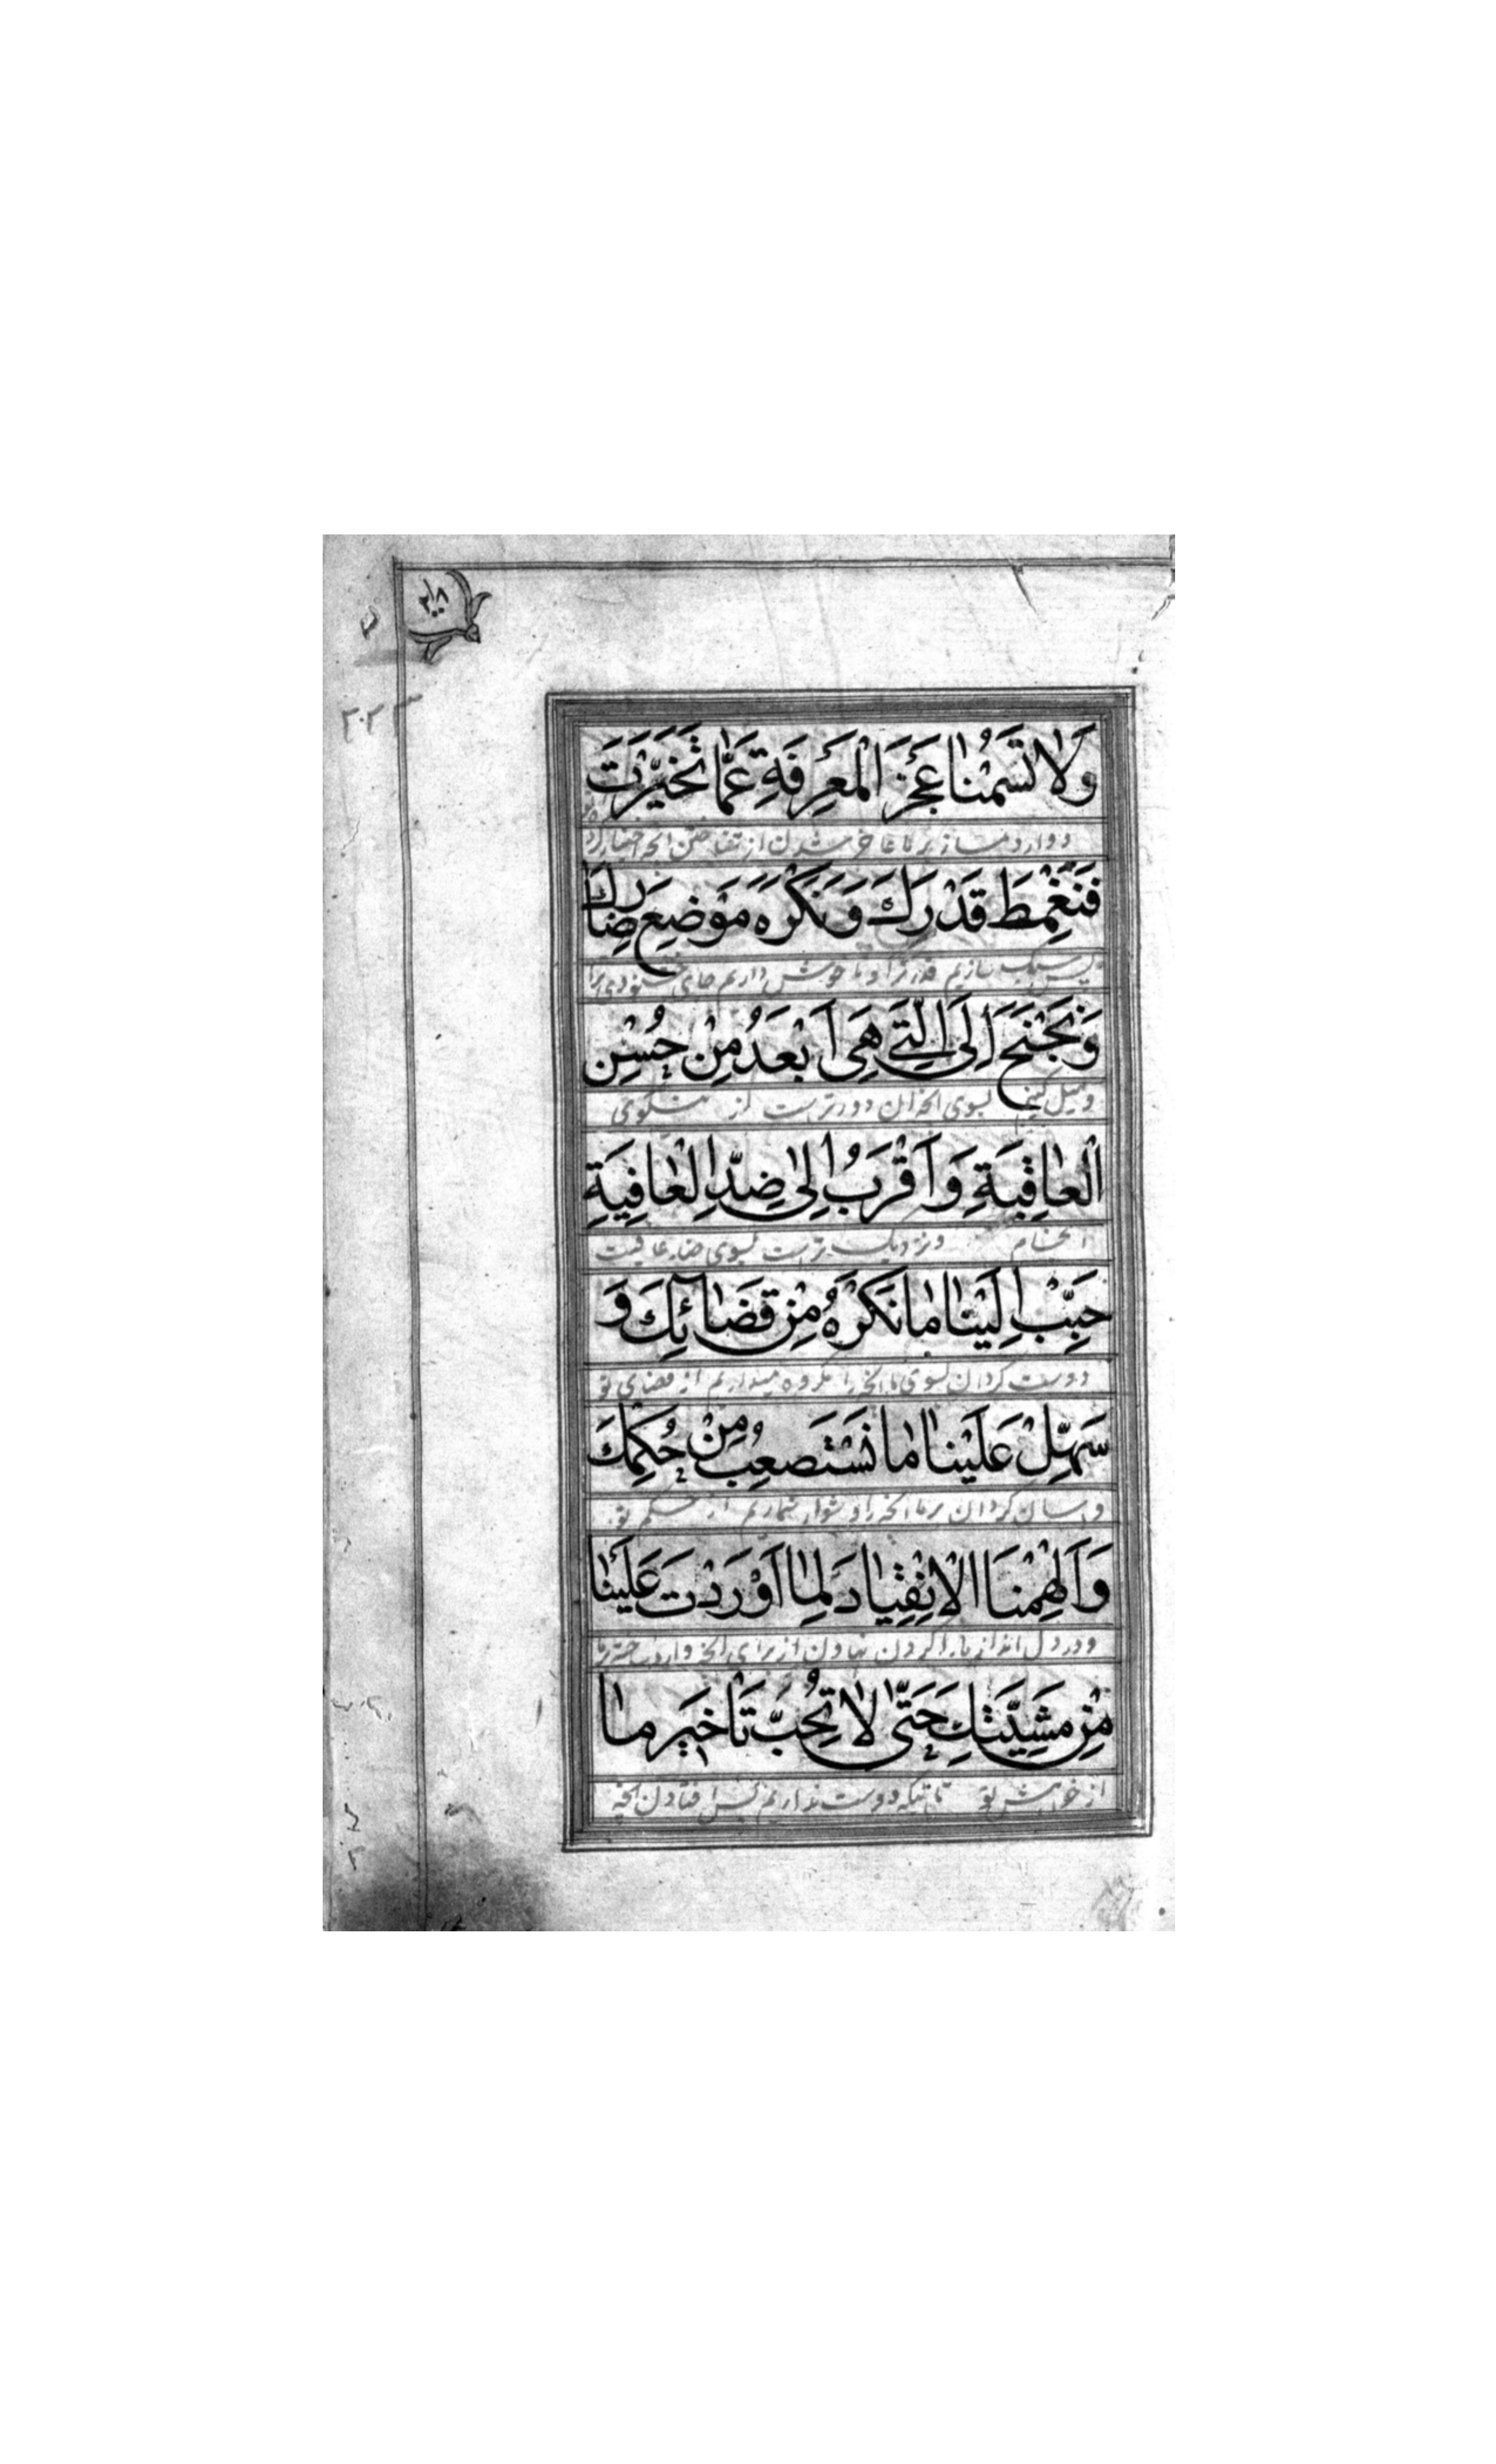 ۲۰۸
۲۰۲
وَلَا تَسُمْنَا عَجْزَ الْمَعْرِفَةِ عَمَّا تَخَيَّرْتَ
فَنَغْمِطَ قَدْرَكَ وَنَكْرَهَ مَوْضِعَ رِضَاكَ
قدر ترا و ناخوش داریم جای خشنودی ترا
وَنَجْنَحَ إِلَى الَّتِي هِيَ أَبْعَدُ مِنْ حُسْنِ
و میل کنیم بسوی آنچه آن دورترست از نیکوی
الْعَاقِبَةِ وَأَقْرَبُ إِلَى ضِدِّ الْعَافِيَةِ
انجام و نزدیک ترست بسوی ضد عافیت
حَبِّبْ إِلَيْنَا مَا نَكْرَهُ مِنْ قَضَائِكَ وَ
دوست گردان بسوی ما آنچه را مکروه میداریم از قضای تو
سَهِّلْ عَلَيْنَا مَا نَسْتَصْعِبُ مِنْ حُكْمِكَ
و آسان گردان بر ما آنچه را دشوار شماریم از حکم تو
وَأَلْهِمْنَا الْاِنْقِيَادَ لِمَا أَوْرَدْتَ عَلَيْنَا
و در دل انداز ما را گردن نهادن از برای آنچه وارد ساخته بر ما
مِنْ مَشِيَّتِكَ حَتَّى لَا نُحِبَّ تَأْخِيرَ مَا
از خواهش تو تا آنکه دوست نداریم پس افتادن آنچه